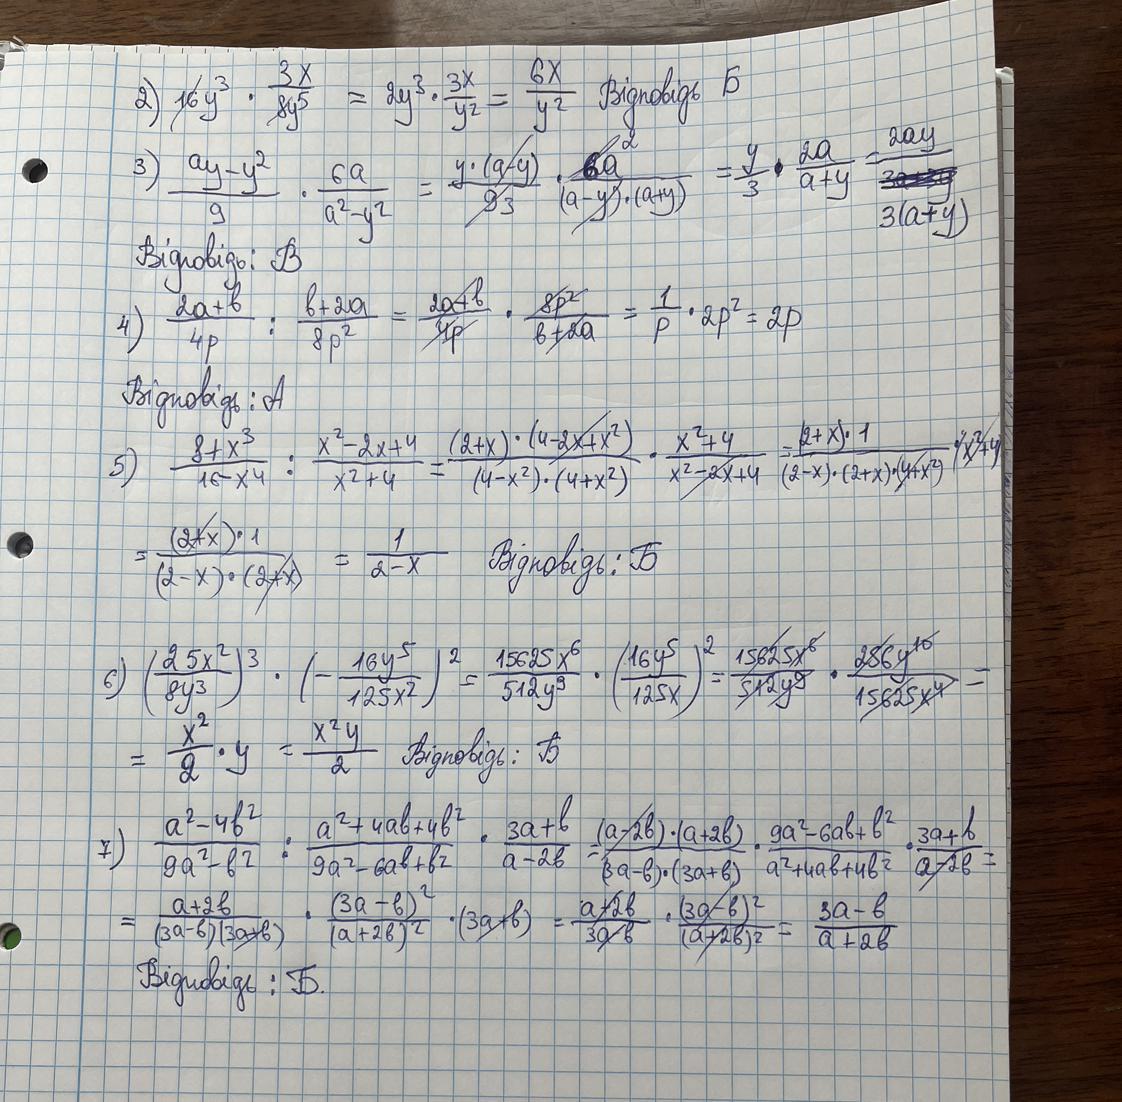 2) 16y³ · 3x/8y⁵ = 2y³ · 3x/y² = 6x/y² Відповідь Б
3) (ay-y²)/9 · 6a/(a²-y²) = (y·(a-y))/93 · 6a²/((a-y)·(a+y)) = y/3 · 2a/(a+y) = 2ay/(3(a+y))
Відповідь: В
4) (2a+b)/4p : (b+2a)/8p² = (2a+b)/4p · 8p²/(b+2a) = 1/p · 2p² = 2p
Відповідь: А
5) (8+x³)/(16-x4) : (x²-2x+4)/(x²+4) = ((2+x)·(4-2x+x²))/((4-x²)·(4+x²)) · (x²+4)/(x²-2x+4) = ((2+x)·1)/((2-x)·(2+x)·(4+x²)) · (x²+4)
= ((2+x)·1)/((2-x)·(2+x)) = 1/(2-x) Відповідь: Б
6) (25x²/8y³)³ · (-16y⁵/125x²)² = 15625x⁶/512y⁹ · (16y⁵/125x)² = 15625x⁶/512y⁹ · 256y¹⁰/15625x⁴ =
= x²/2 · y = x²y/2 Відповідь: Б
7) (a²-4b²)/(9a²-b²) : (a²+4ab+4b²)/(9a²-6ab+b²) · (3a+b)/(a-2b) = ((a-2b)·(a+2b))/((3a-b)·(3a+b)) · (9a²-6ab+b²)/(a²+4ab+4b²) · (3a+b)/(a-2b) =
= (a+2b)/((3a-b)(3a+b)) · (3a-b)²/(a+2b)² · (3a+b) = (a+2b)/(3a-b) · (3a-b)²/(a+2b)² = (3a-b)/(a+2b)
Відповідь: Б.